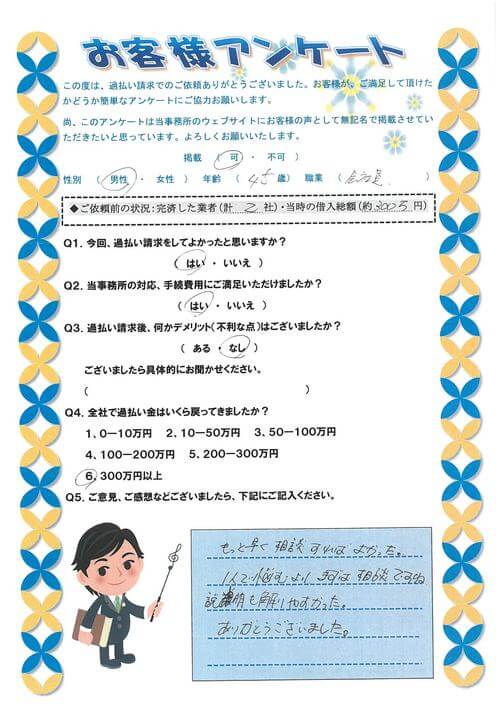 お客様アンケート
この度は、過払い請求でのご依頼ありがとうございました。お客様が、ご満足して頂けた
かどうか簡単なアンケートにご協力お願いします。
尚、このアンケートは当事務所のウェブサイトにお客様の声として無記名で掲載させてい
ただきたいと思っています。よろしくお願いいたします。
掲載 ( 可 ・ 不可 )
性別 ( 男性 ・ 女性 ) 年齢 ( 45 歳) 職業 ( 会社員 )
◆ご依頼前の状況:完済した業者(計 2 社)・当時の借入総額(約300万円)
Q1. 今回、過払い請求をしてよかったと思いますか?
( はい ・ いいえ )
Q2. 当事務所の対応、手続費用にご満足いただけましたか?
( はい ・ いいえ )
Q3. 過払い請求後、何かデメリット(不利な点)はございましたか?
( ある ・ なし )
ございましたら具体的にお聞かせください。
( )
Q4. 全社で過払い金はいくら戻ってきましたか?
1、0ー10万円 2、10ー50万円 3、50ー100万円
4、100ー200万円 5、200ー300万円
6、300万円以上
Q5、ご意見、ご感想などございましたら、下記にご記入ください。
もっと早く相談すればよかった。
1人で悩むより まずは相談ですね
説明も解りやすかった。
ありがとうございました。